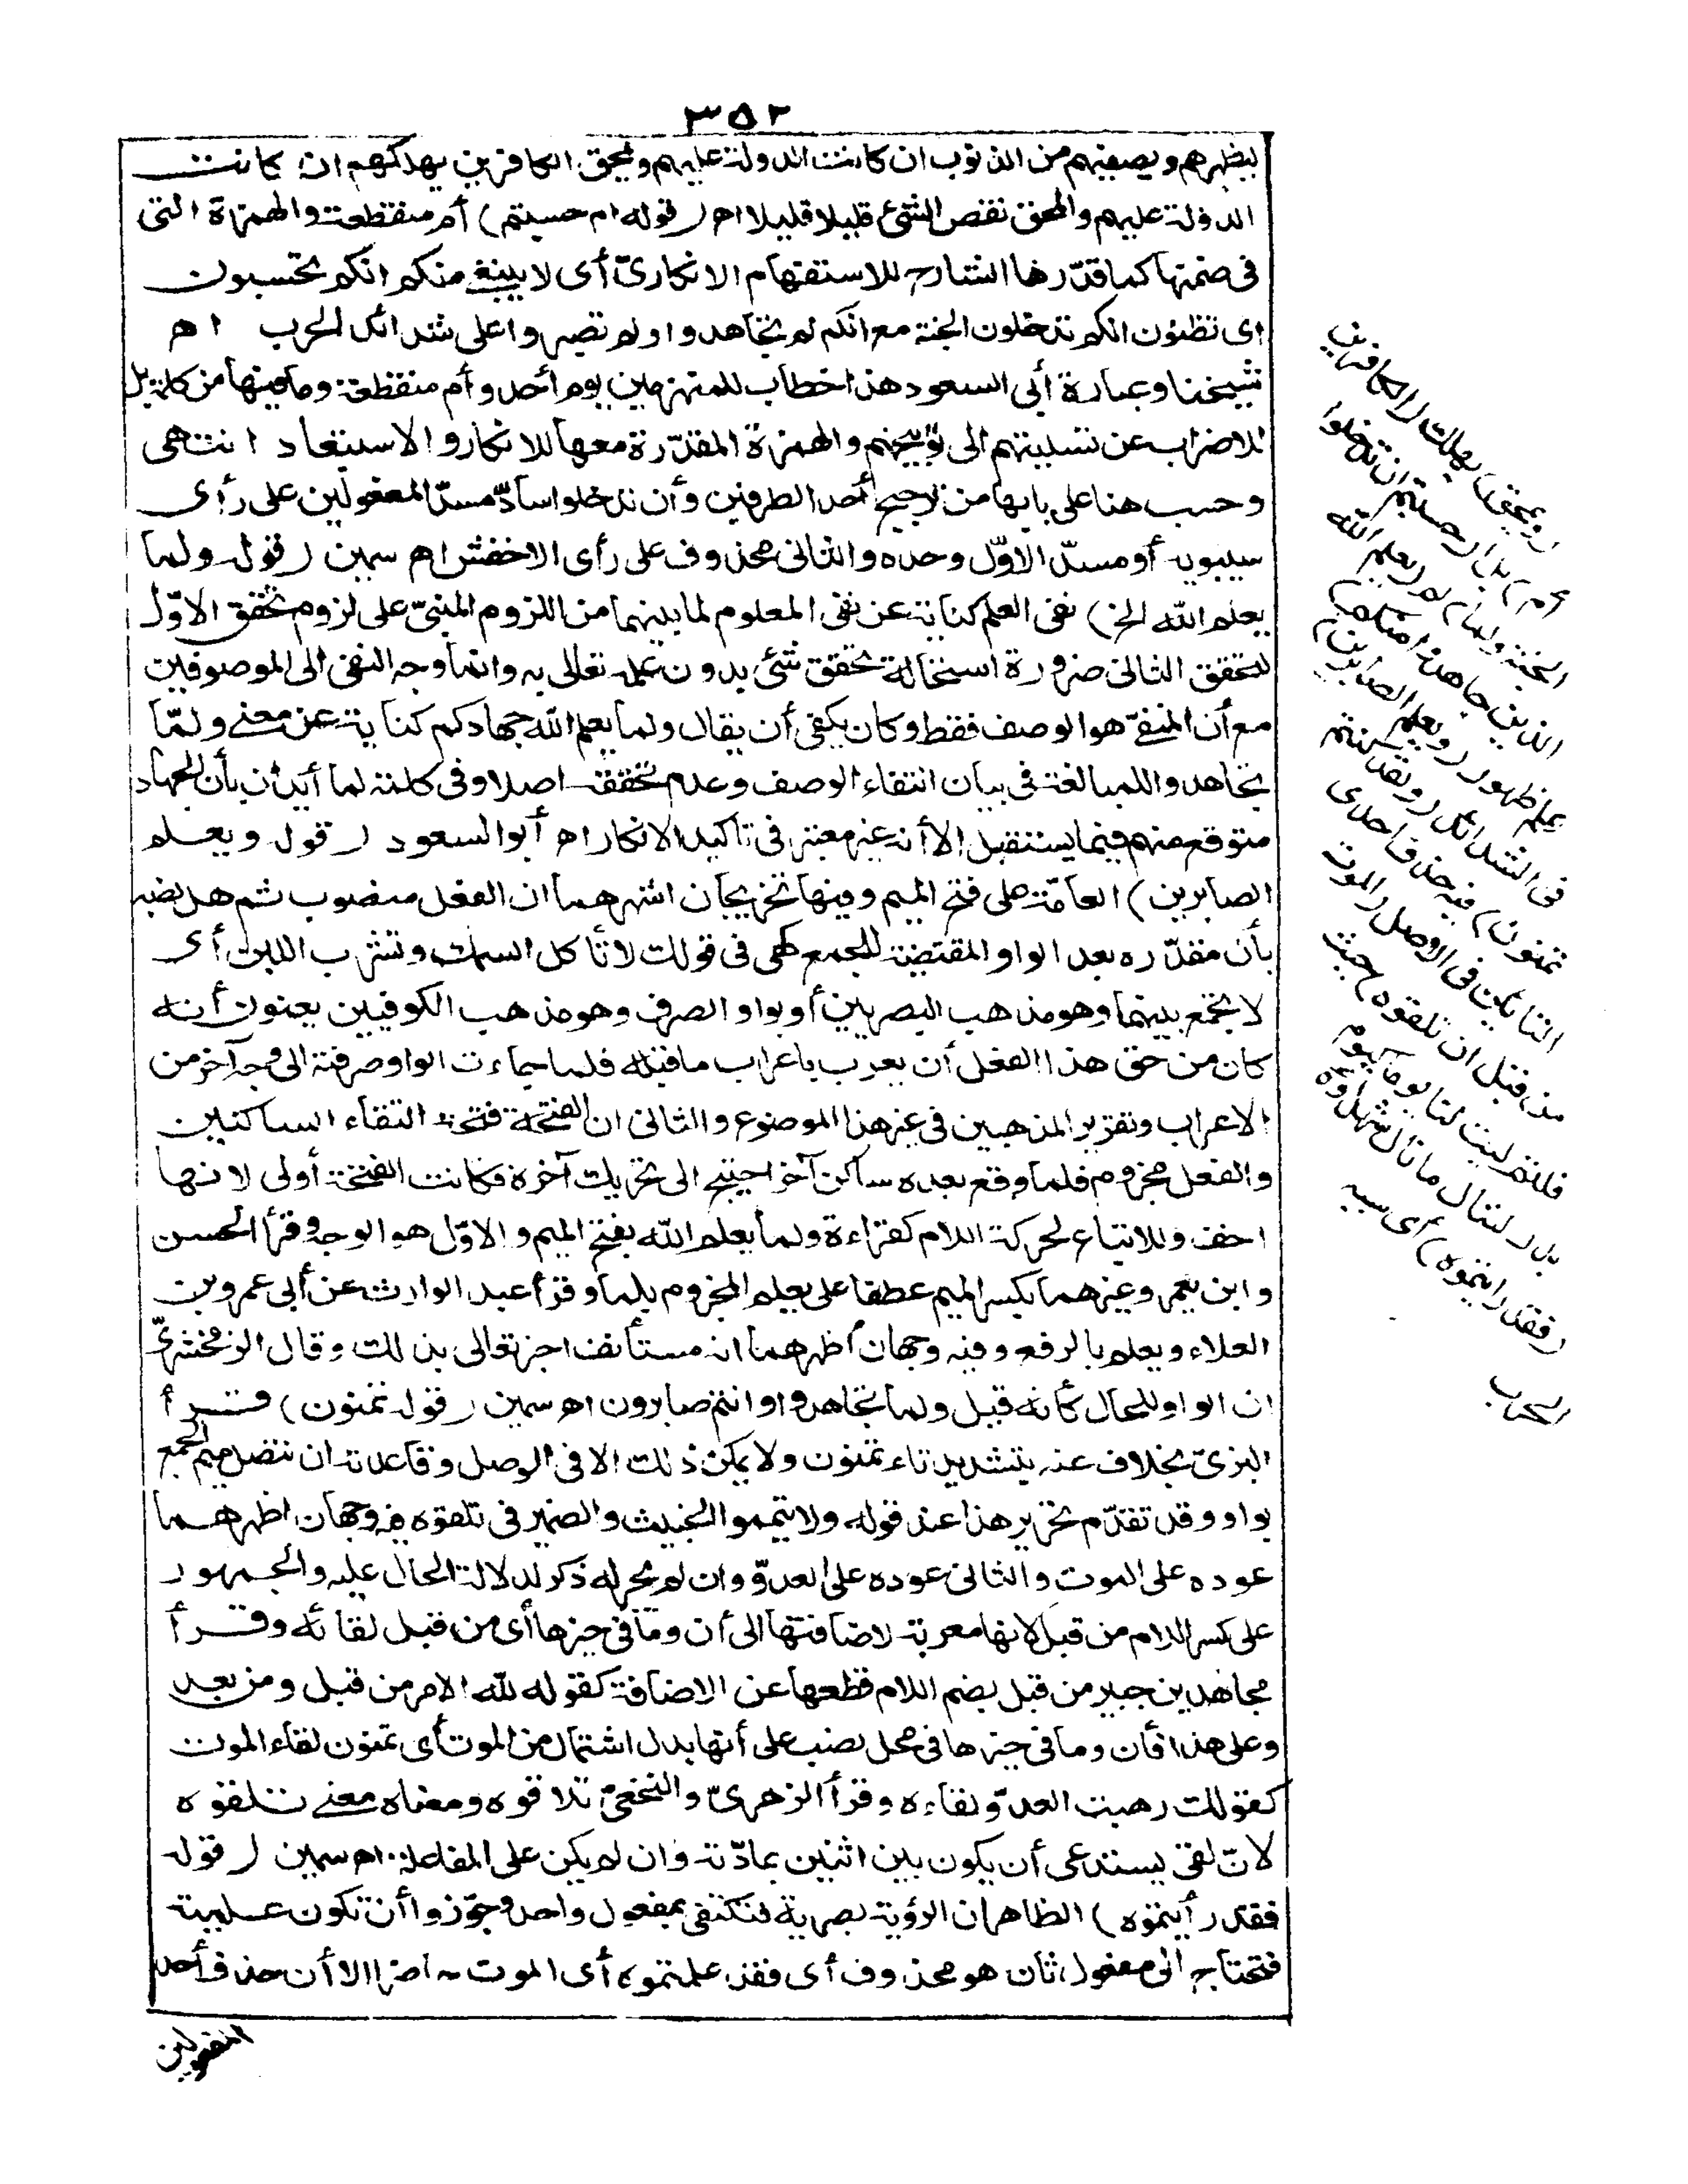 ٣٥٢
ليطهرهم ويصفيهم من الذنوب ان كانت الدولة عليهم ويمحق الكافرين يهلكهم ان كانت
الدولة عليهم والمحق نقص الشئ قليلا قليلا اه (قوله ام حسبتم) أم منقطعة والهمزة التى
فى ضمنها كما قدّرها الشارح للاستفهام الانكارىّ أى لا ينبغى منكم انكم تحسبون
اى تظنون انكم تدخلون الجنة مع انكم لم تجاهدوا ولم تصبروا على شدائد الحرب اه
شيخنا وعبارة أبى السعود هذا خطاب للمنهزمين يوم أحد وأم منقطعة وما فيها من كلمة بل
للاضراب عن تسليتهم الى توبيخهم والهمزة المقدّرة معها للانكار والاستبعاد انتهى
وحسب هنا على بابها من ترجيح أحد الطرفين وأن تدخلوا سادّ مسدّ المفعولين على رأى
سيبويه أو مسدّ الاوّل وحده والثانى محذوف على رأى الاخفش اه سمين (قوله ولما
يعلم الله الخ) نفى العلم كناية عن نفى المعلوم لما بينهما من اللزوم المبنىّ على لزوم تحقق الاوّل
لتحقق الثانى ضرورة استحالة تحقق شئ بدون علمه تعالى به وانما وجه النفى الى الموصوفين
مع أن المنفىّ هو الوصف فقط وكان يكفى أن يقال ولما يعلم الله جهادكم كناية عن معنى ولمّا
تجاهدوا للمبالغة فى بيان انتفاء الوصف وعدم تحققه اصلا وفى كلمة لما أيذان بأن الجهاد
متوقع منهم فيما يستقبل الا أنه غير معتبر فى تاكيد الانكار اه أبو السعود (قوله ويعلم
الصابرين) العامّة على فتح الميم وفيها تخريجان اشهرهما ان الفعل منصوب ثم هل نصبه
بأن مقدّره بعد الواو المقتضية للجمع كهى فى قولك لا تأكل السمك وتشرب اللبن أى
لا تجمع بينهما وهو مذهب البصريين أو بواو الصرف وهو مذهب الكوفيين يعنون أنه
كان من حق هذا الفعل أن يعرب باعراب ما قبله فلما جاءت الواو صرفته الى وجه آخر من
الاعراب وتقرير المذهبين فى غير هذا الموضوع والثانى ان الفتحة فتحة التقاء الساكنين
والفعل مجزوم فلما وقع بعده ساكن آخر احتيج الى تحريك آخره فكانت الفتحة أولى لانها
اخف وللاتباع لحركة اللام كقراءة ولما يعلم الله بفتح الميم والاوّل هو الوجه وقرأ الحسن
وابن يعمر وغيرهما بكسر الميم عطفا على يعلم المجزوم بلما وقرأ عبد الوارث عن أبى عمرو بن
العلاء ويعلم بالرفع وفيه وجهان أظهرهما انه مستأنف اخبر تعالى بذلك وقال الزمخشرىّ
ان الواو للحال كأنه قيل ولما تجاهدوا وانتم صابرون اه سمين (قوله تمنون) قرأ
البزىّ بخلاف عنه بتشديد تاء تمنون ولا يمكن ذلك الا فى الوصل وقاعدته ان تتصل ميم الجمع
بواو وقد تقدّم تحرير هذا عند قوله ولا تيمموا الخبيث والضمير فى تلقوه فيه وجهان اظهرهما
عوده على الموت والثانى عوده على العدوّ وان لم يجر له ذكر لدلالة الحال عليه والجمهور
على كسر اللام من قبل لانها معربة لاضافتها الى أن وما فى حيزها أى من قبل لقائه وقرأ
مجاهد بن جبير من قبل بضم اللام قطعها عن الاضافة كقوله لله الامر من قبل ومن بعد
وعلى هذا فأن وما فى حيزها فى محل نصب على أنها بدل اشتمال من الموت أى تمنون لقاء الموت
كقولك رهبت العدوّ لقاءه وقرأ الزهرىّ والنخعىّ تلاقوه ومعناه معنى تلقوه
لانّ لقى يستدعى أن يكون بين اثنين بمادّته وان لم يكن على المفاعلة اه سمين (قوله
فقد رأيتموه) الظاهر ان الرؤية بصرية فتكتفى بمفعول واحد وجوّزوا أن تكون علمية
فتحتاج الى مفعول ثان هو محذوف أى فقد علمتموه أى الموت حاضرا الا أن حذف أحد
المفعولين
(ويمحق) يهلك (الكافرين
أم) بل أ (حسبتم ان تدخلوا
الجنة ولما) لم (يعلم الله
الذين جاهدوا منكم)
علم ظهور (ويعلم الصابرين)
فى الشدائد (ولقد كنتم
تمنون) فيه حذف احدى
التائين فى الاصل (الموت
من قبل ان تلقوه) حيث
قلتم ليت لنا يوما كيوم
بدر لننال ما نال شهداؤه
(فقد رأيتموه) أى سببه
الحرب